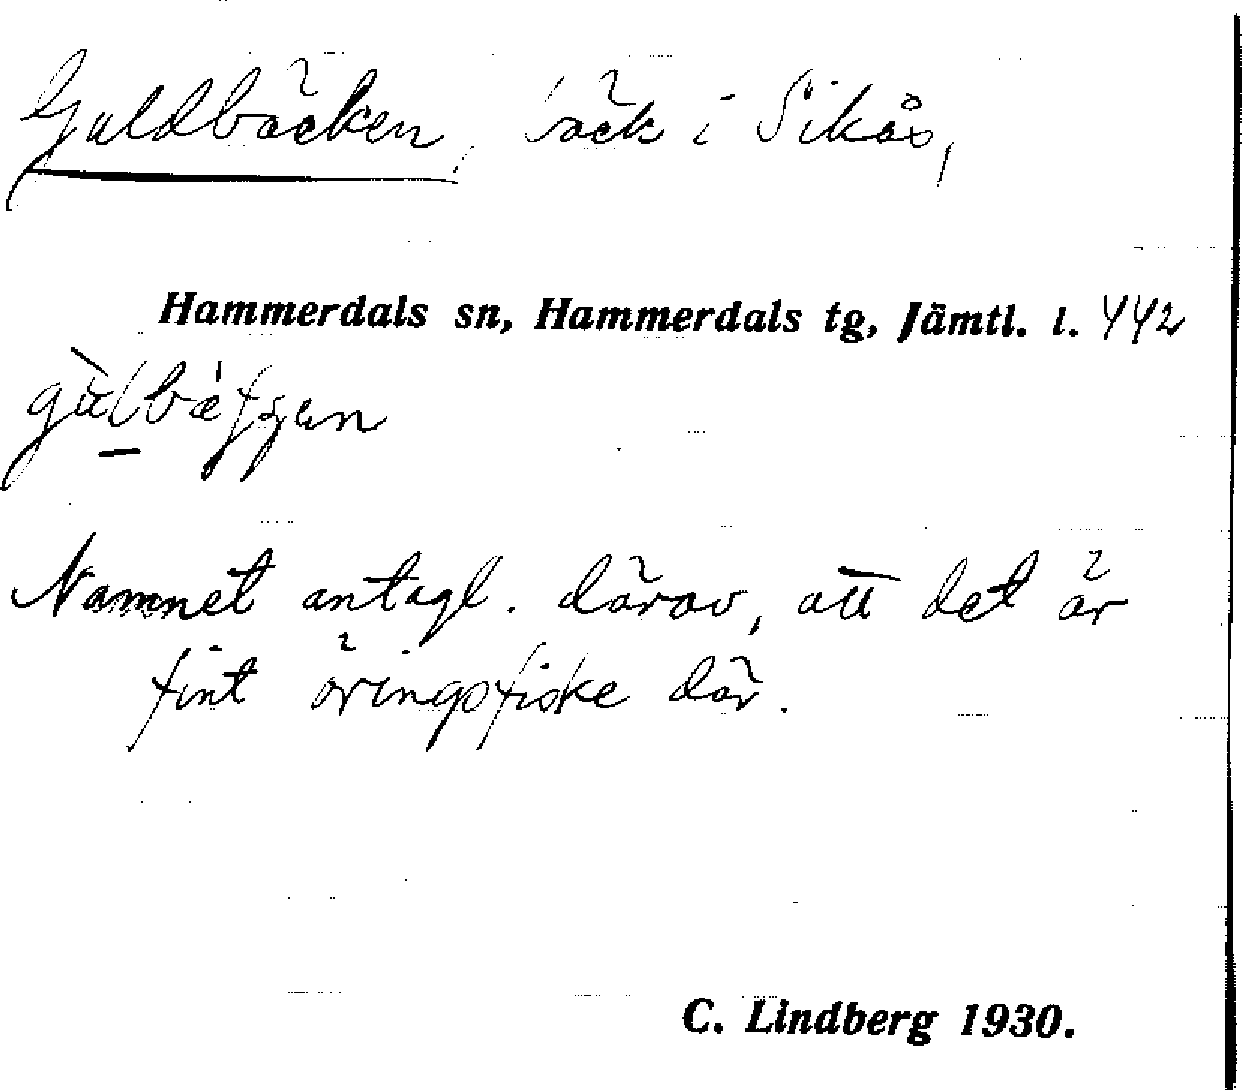 Guldbäcken, bäck i Sikås,
Hammerdals sn, Hammerdals tg, Jämtl. l. 442
Namnet antagl. därav, att det är
fint öringsfiske där.
C. Lindberg 1930.